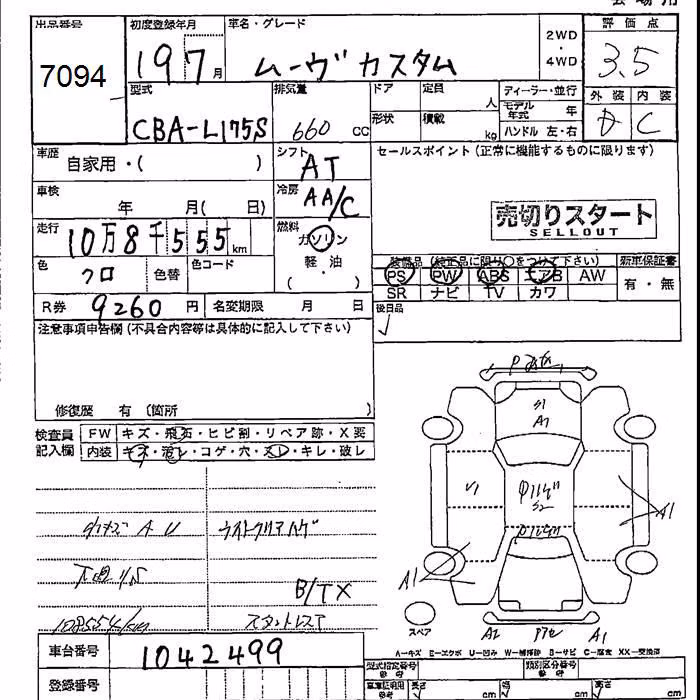 出品番号 初度登録年月 車名・グレード 評価点
7094 19 7月 ムーヴ カスタム 2WD・4WD 3.5
型式 排気量 ドア 定員 人 ディーラー・並行 外装 内装
CBA-L175S 660 CC 形状 積載 kg モデル年式 年 ハンドル 左・右 D C
車歴 自家用・( ) シフト AT セールスポイント(正常に機能するものに限ります)
車検 年 月( 日) 冷房 AA/C
売切りスタート
SELLOUT
走行 10万8千555km 燃料 ガソリン
軽・油
( )
色 クロ 色替 色コード
装備品(純正品に限り○をつけて下さい) 新車保証書
PS PW ABS エアB AW 有・無
SR ナビ TV カワ
R券 9260円 名変期限 月 日 後日品
注意事項申告欄(不具合内容等は具体的に記入して下さい)
修復歴 有 (箇所 )
検査員 FW キズ・飛石・ヒビ割・リペア跡・X要
記入欄 内装 キズ・汚レ・コゲ・穴・スレ・キレ・破レ
S1
A1
V1
S2
A1
A1
B/TX
スペア
A2 A1
A-キズ E-エクボ U-凹み W-補修跡 S-サビ C-腐食 XX-交換済
車台番号 1042499
型式指定番号 類別区分番号
登録番号
車庫証明用 長さ cm 巾 cm 高さ cm